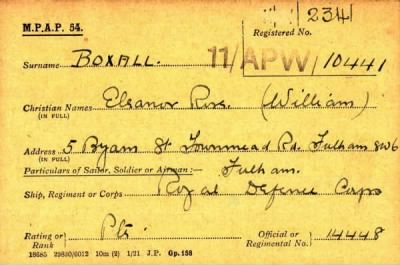 M.P.A.P. 54.
234
Registered No.
Surname BOXALL. 11/APW/10441
Christian Names Eleanor Rose. (William)
(IN FULL)
Address 5 Byam St Townmead Rd. Fulham SW6
(IN FULL)
Particulars of Sailor, Soldier or Airman:— Fulham.
Ship, Regiment or Corps Royal Defence Corps
Rating or Rank Pte. Official or Regimental No. 14448
18685 29830/6012 10m (2) 1/21 J.P. Gp. 158